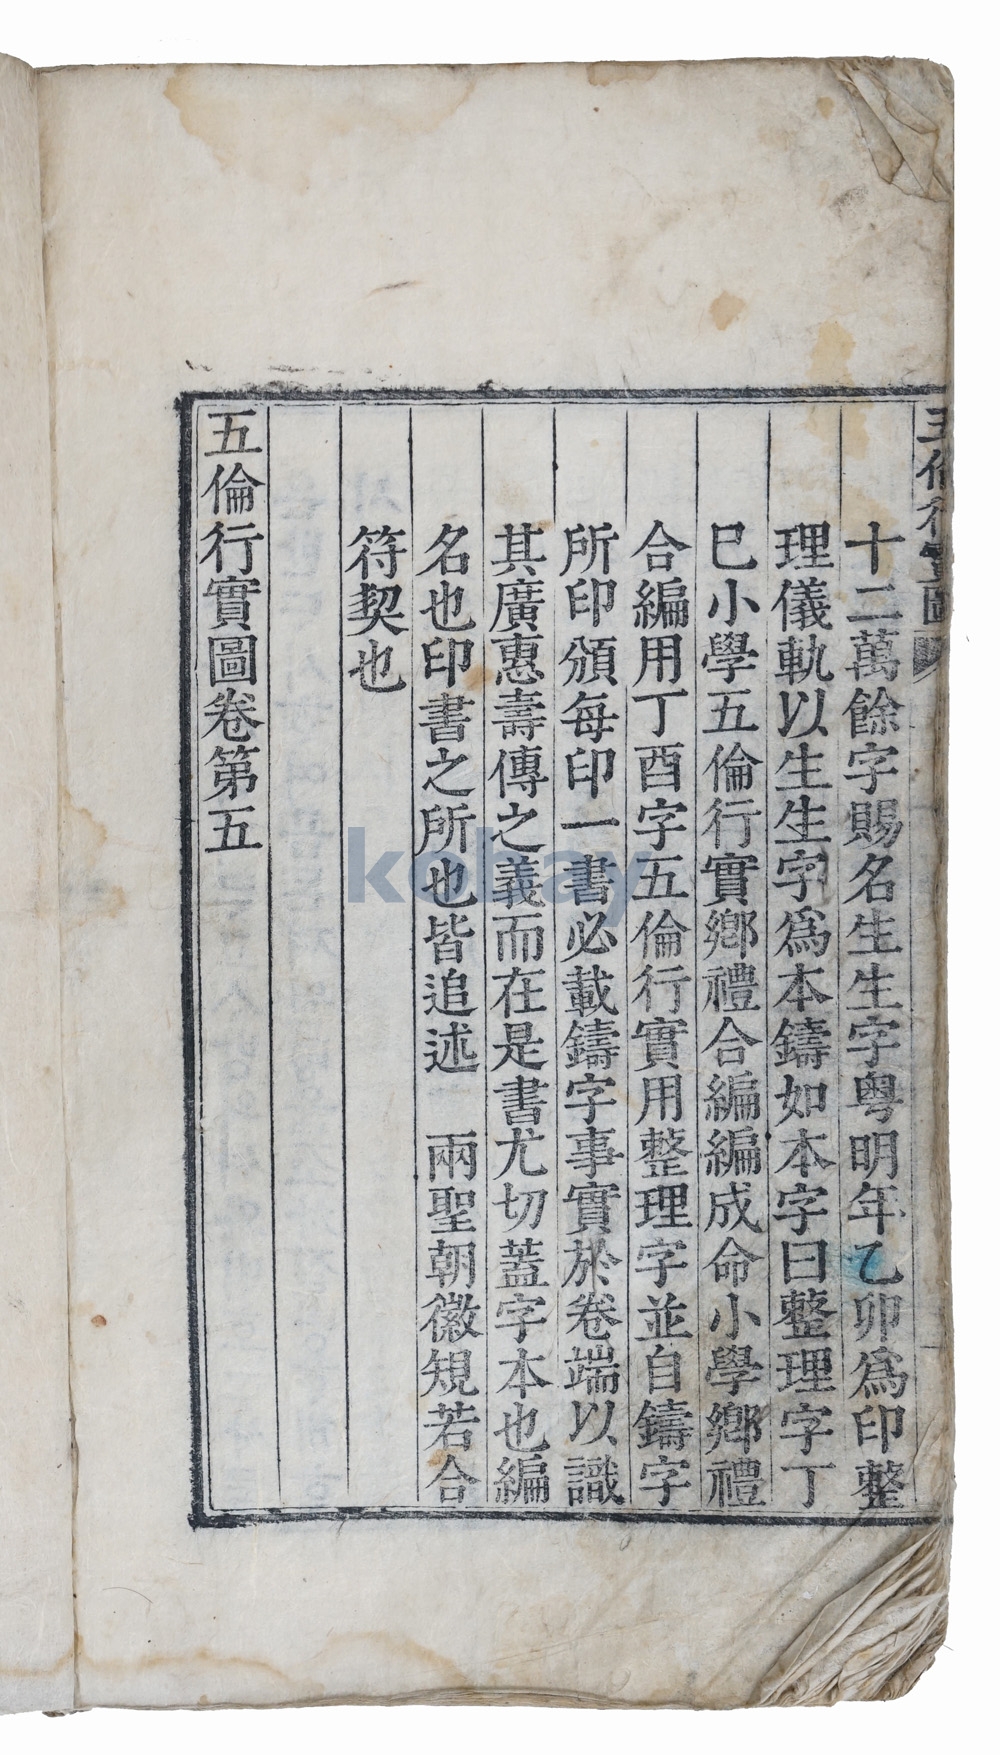 五倫行實圖
十二萬餘字賜名生生字粤明年乙卯爲印整
理儀軌以生生字爲本鑄如本字曰整理字丁
巳小學五倫行實鄕禮合編編成命小學鄕禮
合編用丁酉字五倫行實用整理字並自鑄字
所印頒每印一書必載鑄字事實於卷端以識
其廣惠壽傳之義而在是書尤切蓋字本也編
名也印書之所也皆追述　兩聖朝徽規若合
符契也
五倫行實圖卷第五
kobay